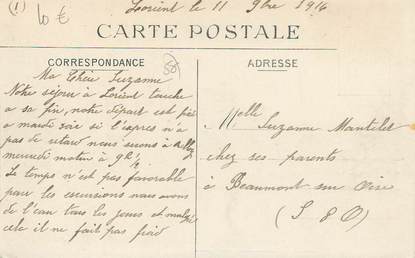 (1) 10 €
Lorient le 11 9bre 1916
CARTE POSTALE
CORRESPONDANCE
ADRESSE
88
Ma Chère Suzanne
Notre séjour à Lorient touche
a sa fin, notre départ est fixé
a mardi soir si l'express n'a
pas de retard nous serons à
mercredi matin à 9h 1/2
Le temps n'est pas favorable
pour les excursions nous avons
de l'eau tous les jours et malgré
cela il ne fait pas froid
Melle Suzanne Mantelet
chez ses parents
à Beaumont sur Oise
(S & O)